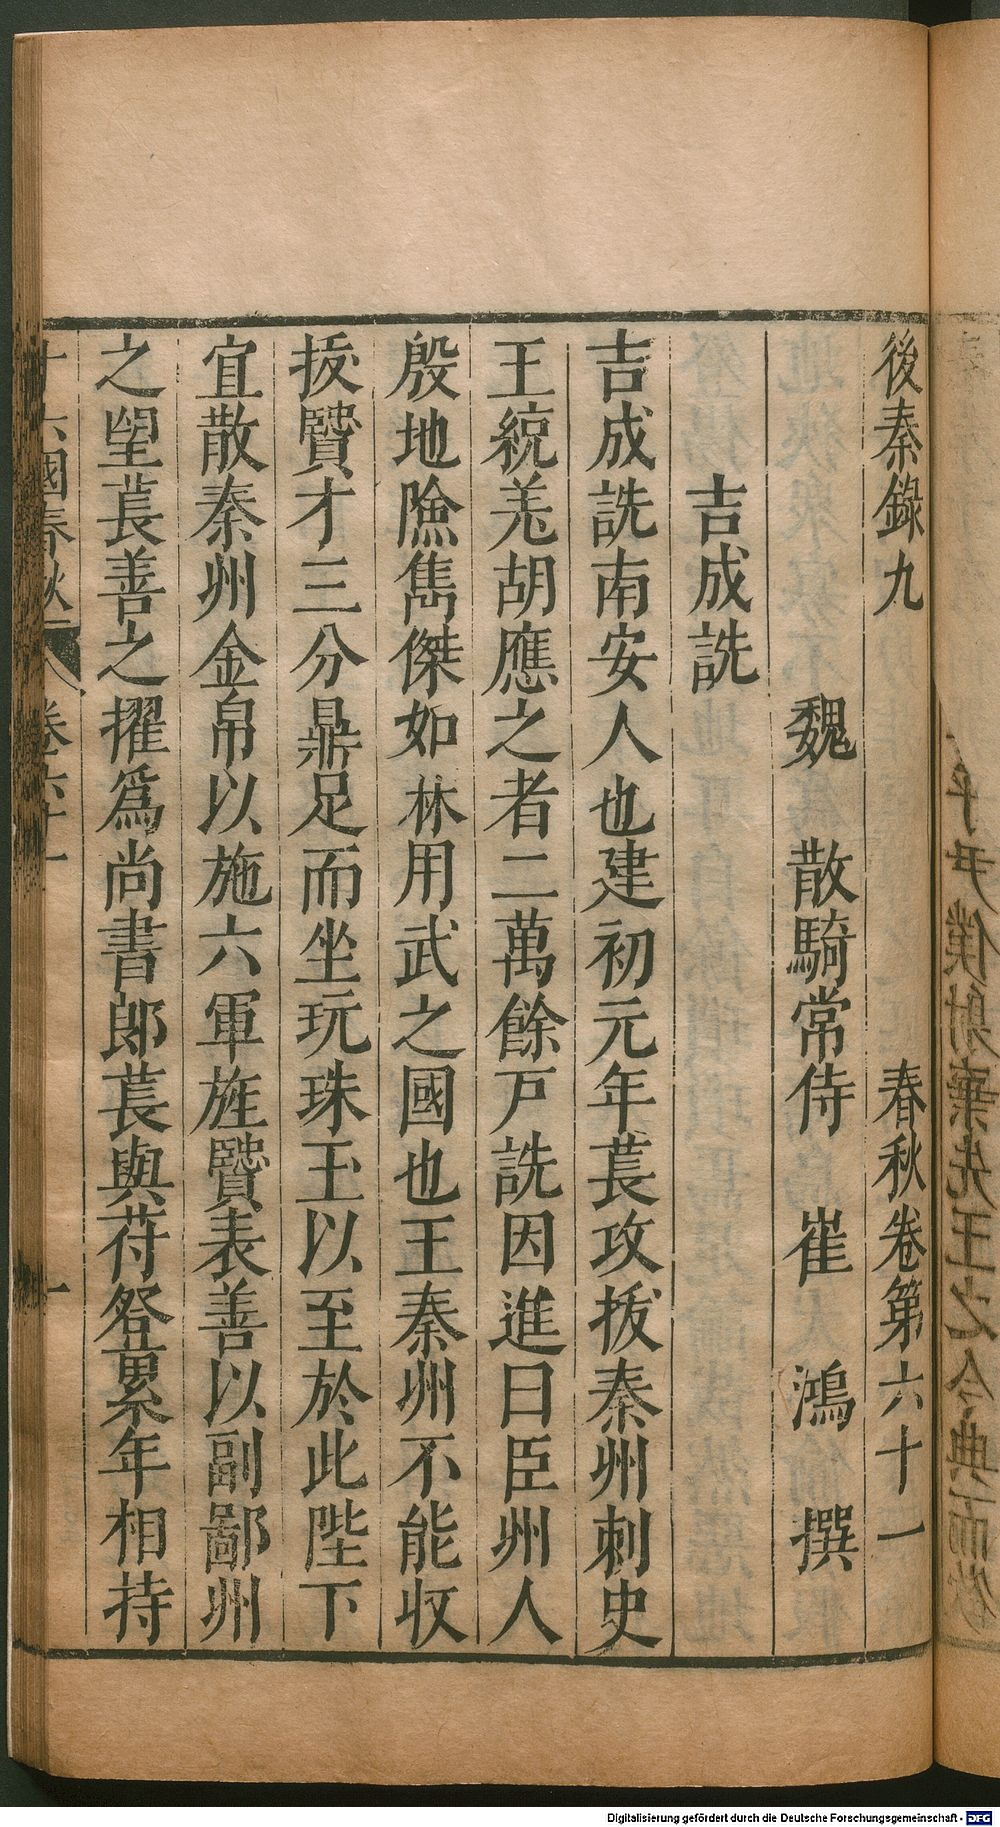 後秦錄九　春秋卷第六十一
魏　散騎常侍　崔　鴻　撰
吉成詵
吉成詵南安人也建初元年萇攻拔秦州刺史
王統羌胡應之者二萬餘戸詵因進曰臣州人
殷地險雋傑如林用武之國也王秦州不能收
拔賢才三分鼎足而坐玩珠玉以至於此陛下
宜散秦州金帛以施六軍旌賢表善以副鄙州
之望萇善之擢爲尚書郎萇與苻登累年相持
十六國春秋　卷六十一　一
Digitalisierung gefördert durch die Deutsche Forschungsgemeinschaft - DFG